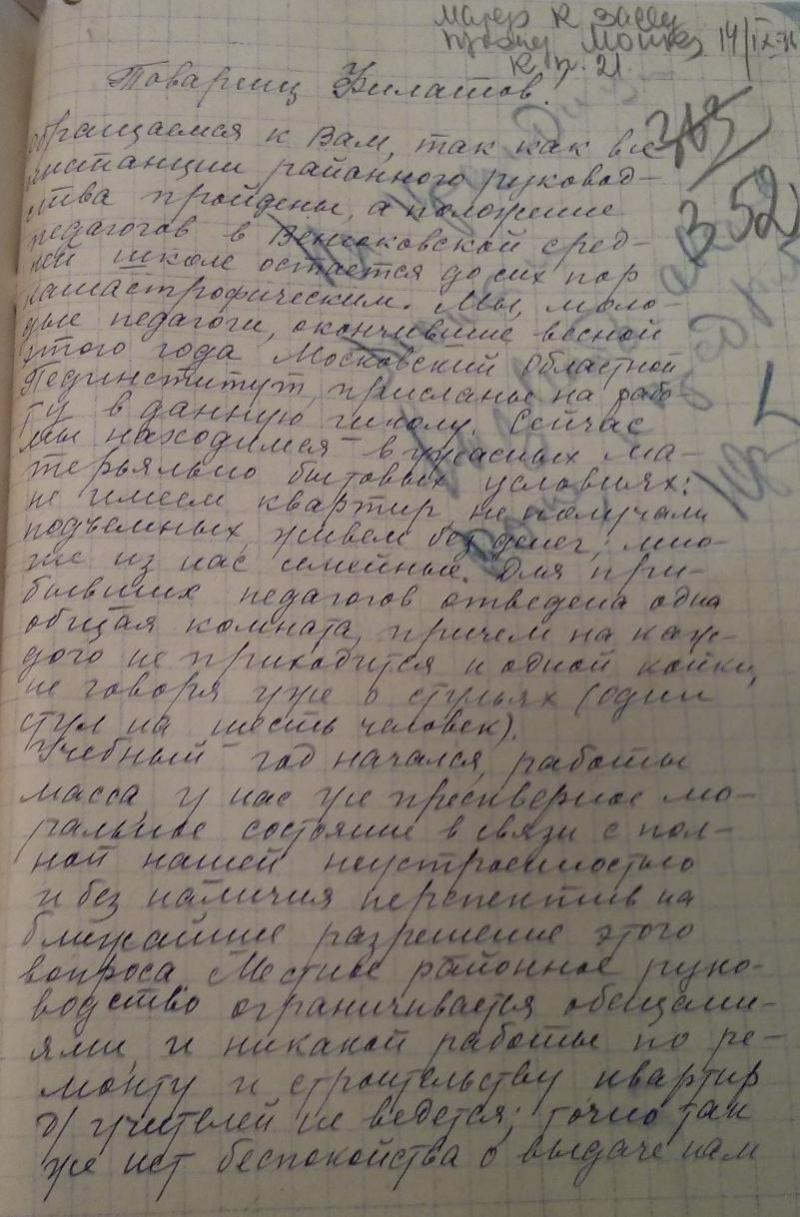 матер к засед
Товарищ Филатов.
363
352
обращаемся к Вам, так как все
инстанции районного руковод-
ства пройдены, а положение
педагогов в Венюковской сред-
ней школе остается до сих пор
катастрофическим. Мы, моло-
дые педагоги, окончившие весной
этого года Московский Областной
Пединститут, присланы на рабо-
ту в данную школу. Сейчас
мы находимся в ужасных ма-
терьяльно бытовых условиях:
не имеем квартир, не получали
подъемных, живем без денег; мно-
гие из нас семейные. Для при-
бывших педагогов отведена одна
общая комната, причем на каж-
дого не приходится и одной койки,
не говоря уже о стульях (один
стул на шесть человек).
Учебный год начался, работы
масса, у нас же прескверное мо-
ральное состояние в связи с пол-
ной нашей неустроенностью
и без наличия перспектив на
ближайшие разрешение этого
вопроса. Местное районное руко-
водство ограничивается обещани-
ями, и никакой работы по ре-
монту и строительству квартир
д/ учителей не ведется; точно так
же нет беспокойства о выдаче нам